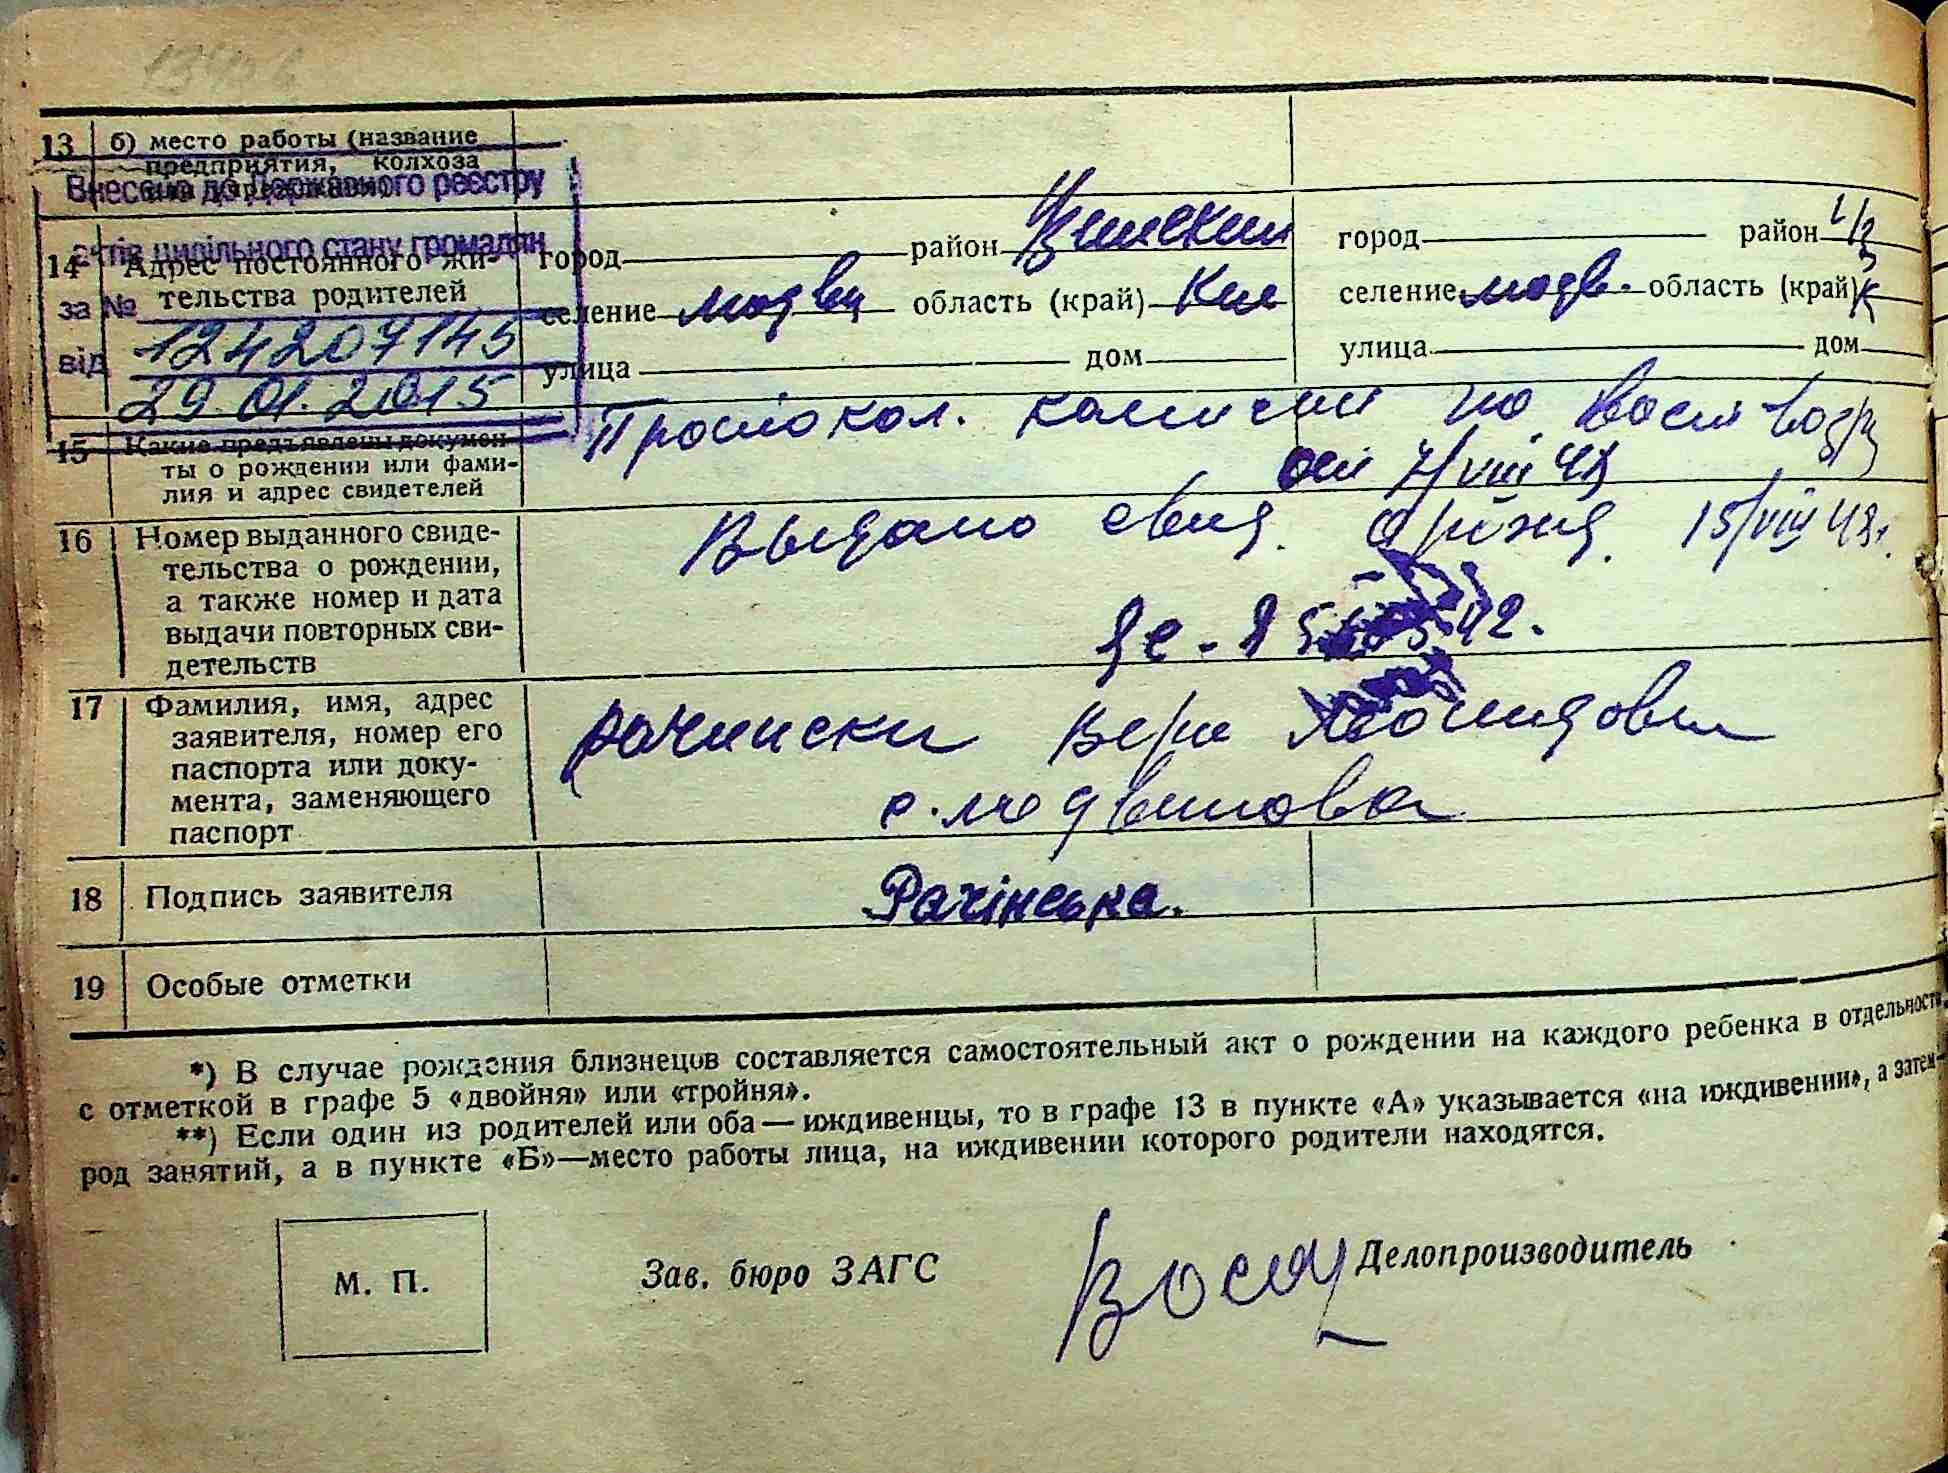 13 б) место работы (название
предприятия, колхоза
Внесено до Державного реєстру
актів цивільного стану громадян
за №
від 124207145
29.01.2015
14 Адрес постоянного жи-
тельства родителей
город район
селение область (край)
улица дом
город район
селение модв. область (край)
улица дом
15 Какие предъявлены докумен-
ты о рождении или фами-
лия и адрес свидетелей
Протокол. комисии по
от 7/VIII 48
16 Номер выданного свиде-
тельства о рождении,
а также номер и дата
выдачи повторных сви-
детельств
Выдано свид. о рожд. 15/VIII 48г.
17 Фамилия, имя, адрес
заявителя, номер его
паспорта или доку-
мента, заменяющего
паспорт
Рачински Вера
18 Подпись заявителя
Рачінська.
19 Особые отметки
*) В случае рождения близнецов составляется самостоятельный акт о рождении на каждого ребенка в отдельности,
с отметкой в графе 5 «двойня» или «тройня».
**) Если один из родителей или оба — иждивенцы, то в графе 13 в пункте «А» указывается «на иждивении», а затем—
род занятий, а в пункте «Б»—место работы лица, на иждивении которого родители находятся.
М. П.
Зав. бюро ЗАГС
Делопроизводитель